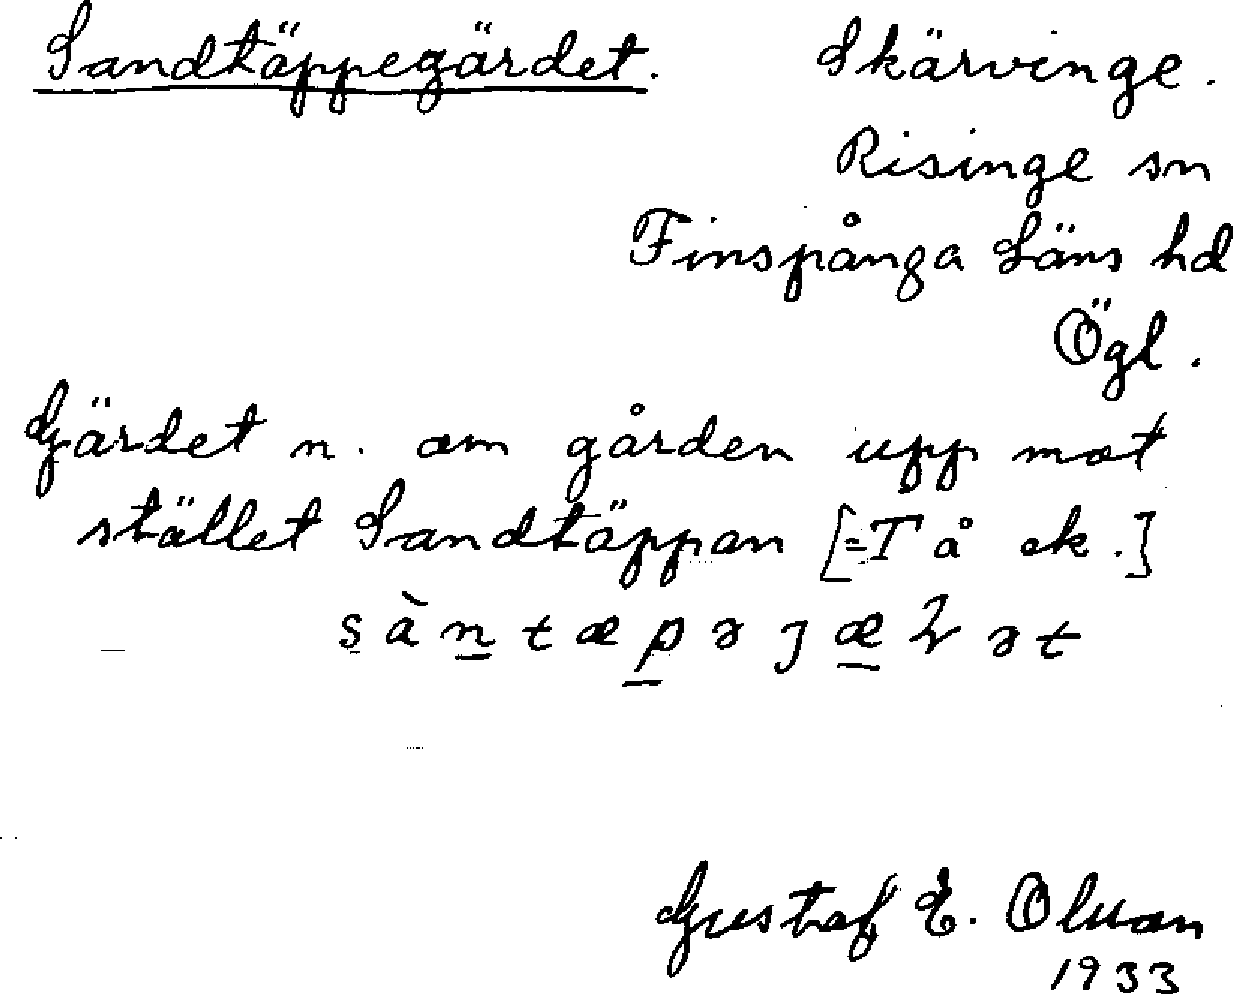 Sandtäppegärdet. Skärvinge.
Risinge sn
Finspånga Läns hd
Ögl.
Gärdet n. om gården upp mot
stället Sandtäppan [=T å ek.]
Gustaf E. Olson
1933